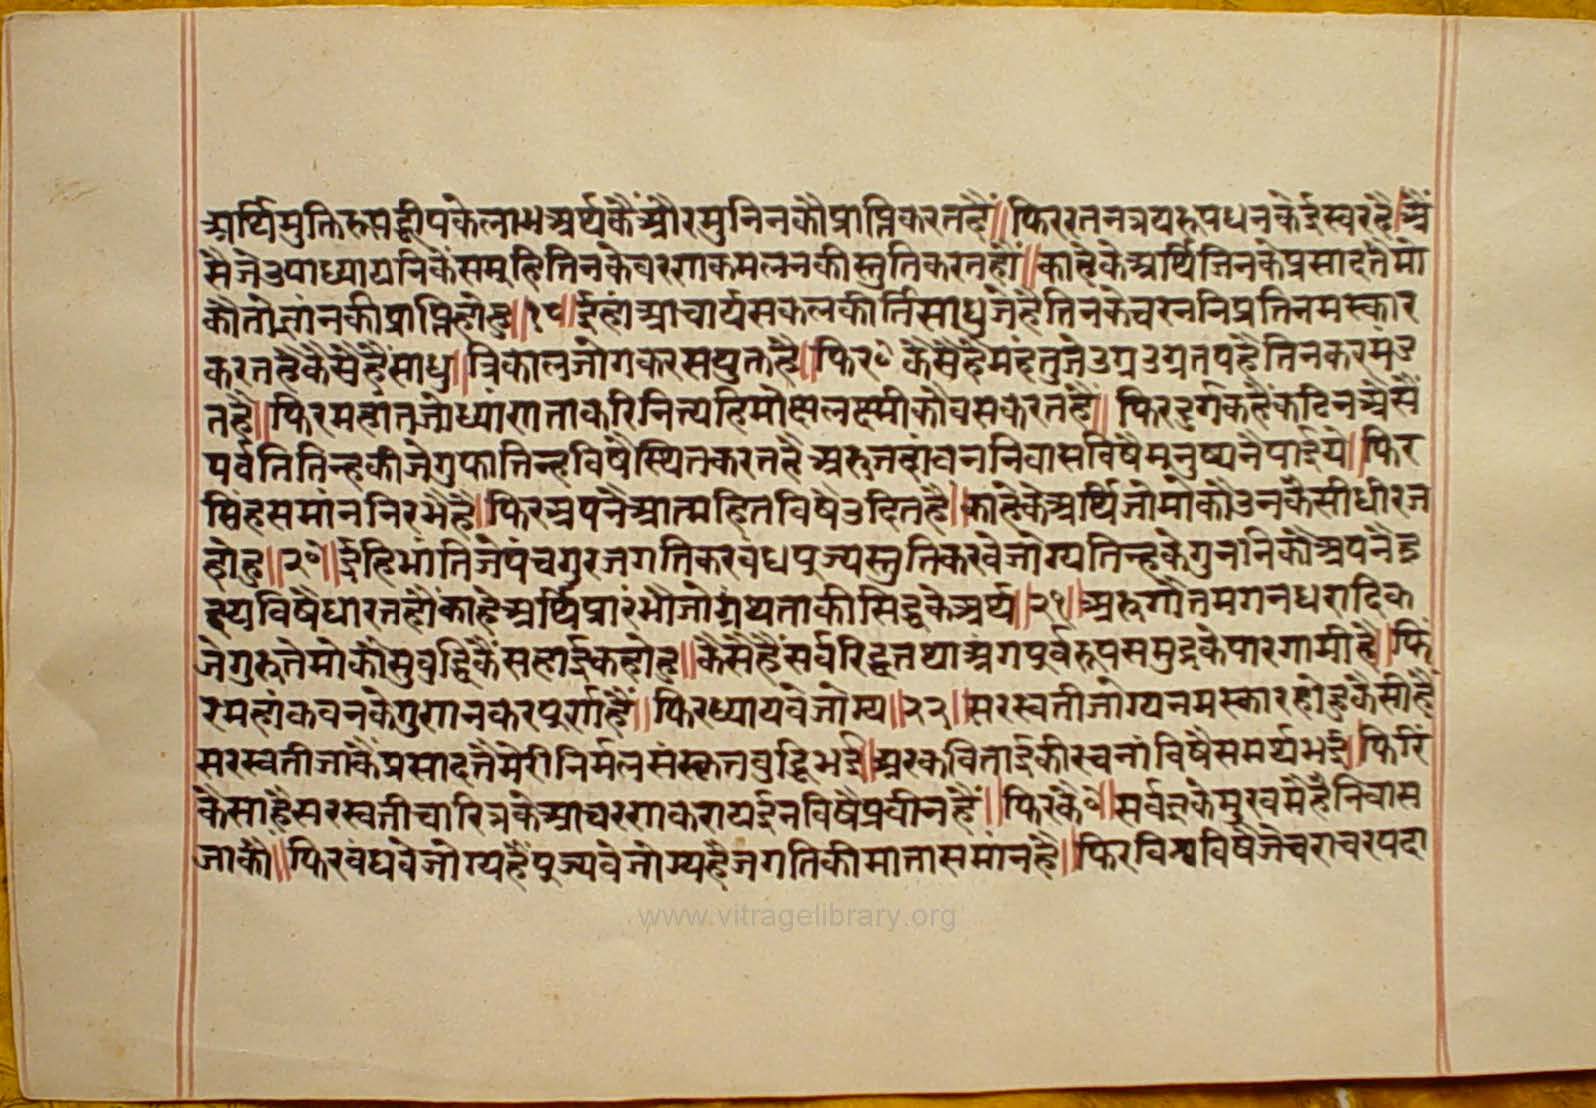 अर्थि मुक्तिरूपद्वीपकेलाभअर्थकैंऔरमुनिनकौप्राप्तिकरतहैं॥फिररतनत्रयरूपधनकेईस्वरहै॥अैं
सैजेउपाध्यायनिकेंसमुहितिनकेचरणकमलनकीस्तुतिकरतहौं॥काहेकेअर्थिजिनकेप्रसादतैमो
कौतोतांनकीप्राप्तिहोहु॥१९॥ईहांआचार्यसकलकीर्तिसाधुजेहैतिनकेचरननिप्रतिनमस्कार
करतहैकैसेहैंसाधु॥त्रिकालजोगकरसंयुक्तहै॥फिर॰कैसैहैमहंतुजेउग्रउग्रतपहैतिनकरमंउ
तहै॥फिरमहांतजोध्यांणताकरिनित्यहिमोक्षलक्ष्मीकौवसकरतहैं॥फिरदुर्गकहैंकठिनअैसैं
पर्वततिन्हकीजेगुफातिन्हविषैस्थितकरतहै अरुजहांवननिवासविषैमनुष्यनैपाईये॥फिर
सिंहसमांननिरभैहै॥फिरअपनैआत्महितविषेउदितहै॥काहेकेअर्थिजोमोकौउनकैसीधीरज
होहु॥२०॥ईहिभांतिजेपंचगुरजगतिकरवंधपुज्यस्तुतिकरवेजोग्यतिन्हकेगुननिकौअपनैह्र
दयविषैधारतहौंकाहेअर्थिप्रारंभौजोग्रंथताकीसिद्धकेअर्थ॥२१॥अरुगौतमगनधरादिक
जेगुरुतेमोकौसुवुद्धिकैंसहाईकहोहु॥कैसेहैंसर्वरिद्धतथाअंगपुर्वरूपसमुद्रकेपारगामीहै॥फि
रमहांकवनकेगुणनकरपुर्णहैं॥फिरध्यायवेजोग्य॥२२॥सरस्वतीजोग्यनमस्कारहोहुकैसीहै
सरस्वतीजाकैंप्रसादतैमेरीनिर्मलसंस्कृतवुद्धिभई॥अरकविताईकीरचनांविषैसमर्थभई॥फिरि
कैसाहैसरस्वतीचारित्रकेआचरणकरायईनविषैप्रवीनहैं॥फिरकै॰॥सर्वज्ञकेमुखमैहैनिवास
जाकौ॥फिरवंधवेजोग्यहैंपुज्यवेजोग्यहैजगतिकीमातासमांनहै॥फिरविश्वविषैजेचराचरपदा
www.vitragelibrary.org